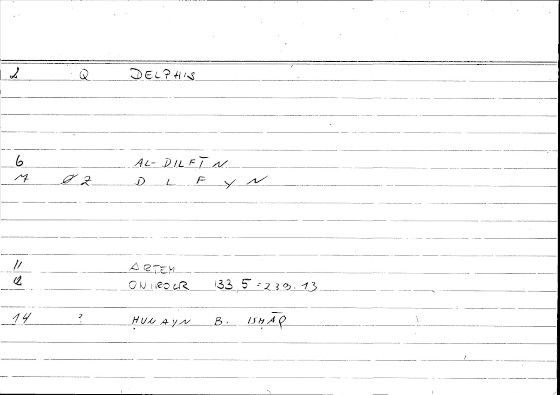 2 Q DELPHIS
6 AL-DILFĪN
M ØZ D L F Y N
11 ARTEM
12 ONIROCR 133,5=239.13
14 ? ḤUNAYN B. ISḤĀQ